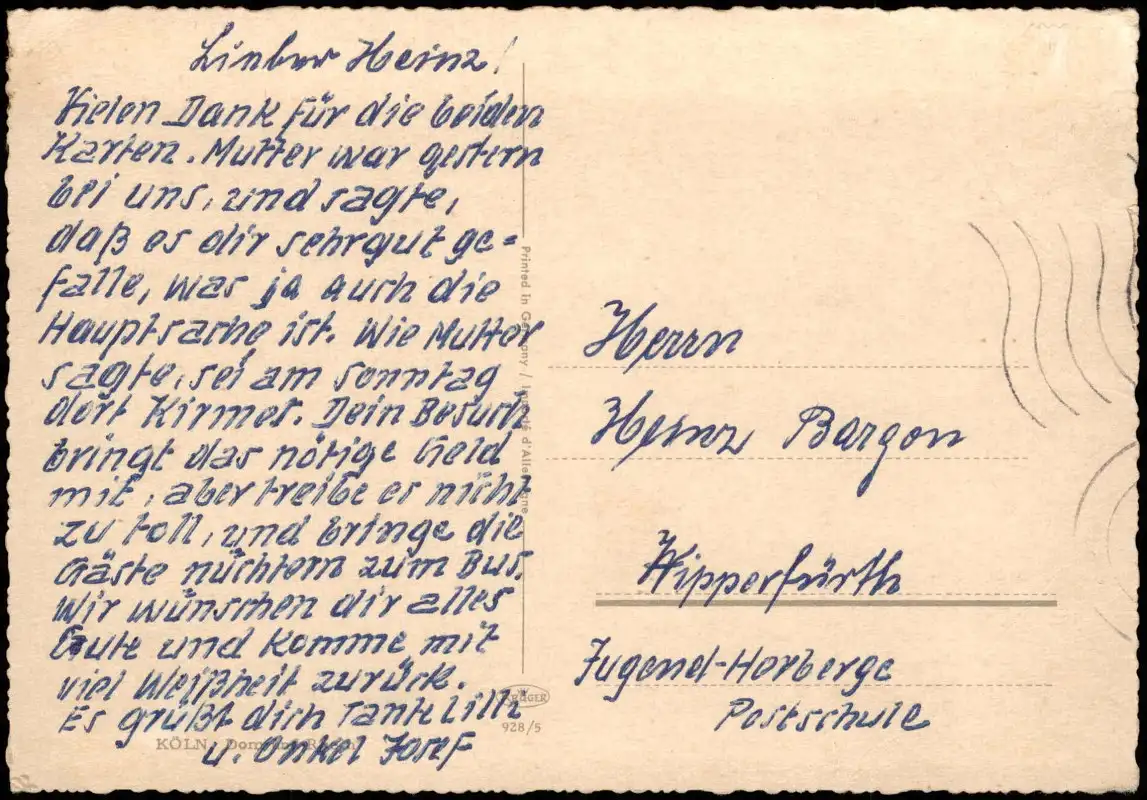 Lieber Heinz!
Vielen Dank für die beiden
Karten. Mutter war gestern
bei uns, und sagte,
daß es dir sehr gut ge=
falle, was ja auch die
Hauptsache ist. Wie Mutter
sagte, sei am Sonntag
dort Kirmes. Dein Besuch
bringt das nötige Geld
mit, aber treibe es nicht
zu toll, und bringe die
Gäste nüchtern zum Bus.
Wir wünschen dir alles
Gute und komme mit
viel Weißheit zurück.
Es grüßt dich Tante Lilli
u. Onkel Josef
KÖLN
Printed in Germany / Importé d'Allemagne
KRÜGER
928/5
Herrn
Heinz Bargon
Wipperfürth
Jugend-Herberge
Postschule